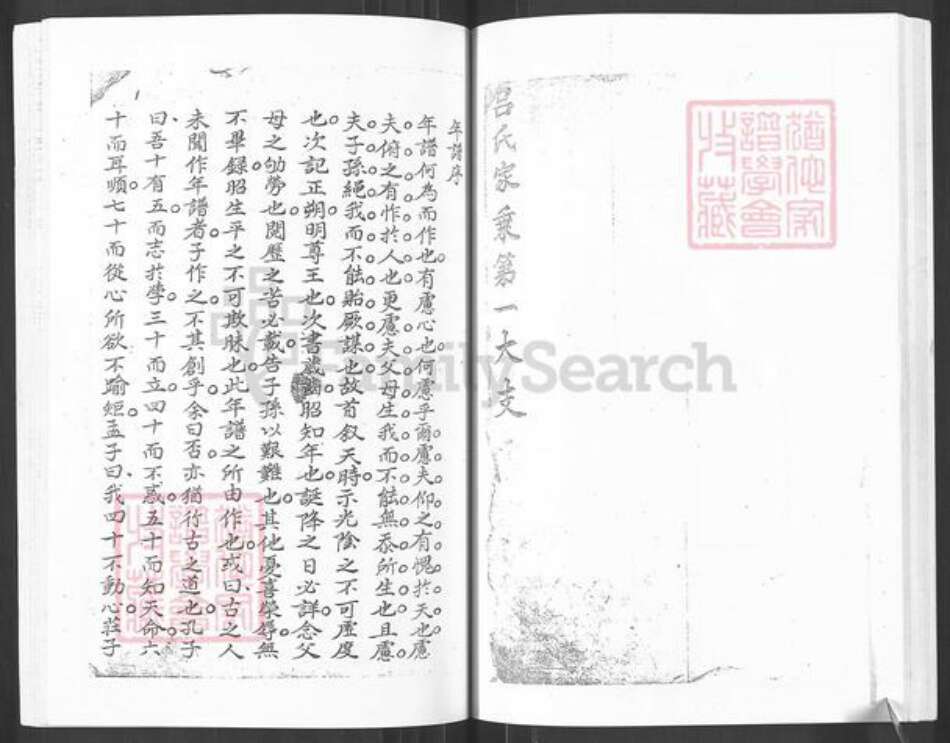 呂氏家乘第一大支
年譜序
年譜何為而作也有慮心也何慮乎爾慮夫仰之有愧於天也慮
夫俯之有怍於人也更慮夫父母生我而不能無忝所生也且慮
夫子孫繩我而不能貽厥謀也故首叙天時示光陰之不可虛度
也次記正朔明尊王也次書歲齒昭知年也誕降之日必詳念父
母之劬勞也閱歷之苦必載告子孫以艱難也其他憂喜榮辱無
不畢錄昭生平之不可欺昧也此年譜之所由作也或曰古之人
未聞作年譜者子作之不其創乎余曰否亦猶行古之道也孔子
曰吾十有五而志於學三十而立四十而不惑五十而知天命六
十而耳順七十而從心所欲不踰矩孟子曰我四十不動心莊子
猶他家
譜學會
收藏
猶他家
譜學會
收藏
FamilySearch